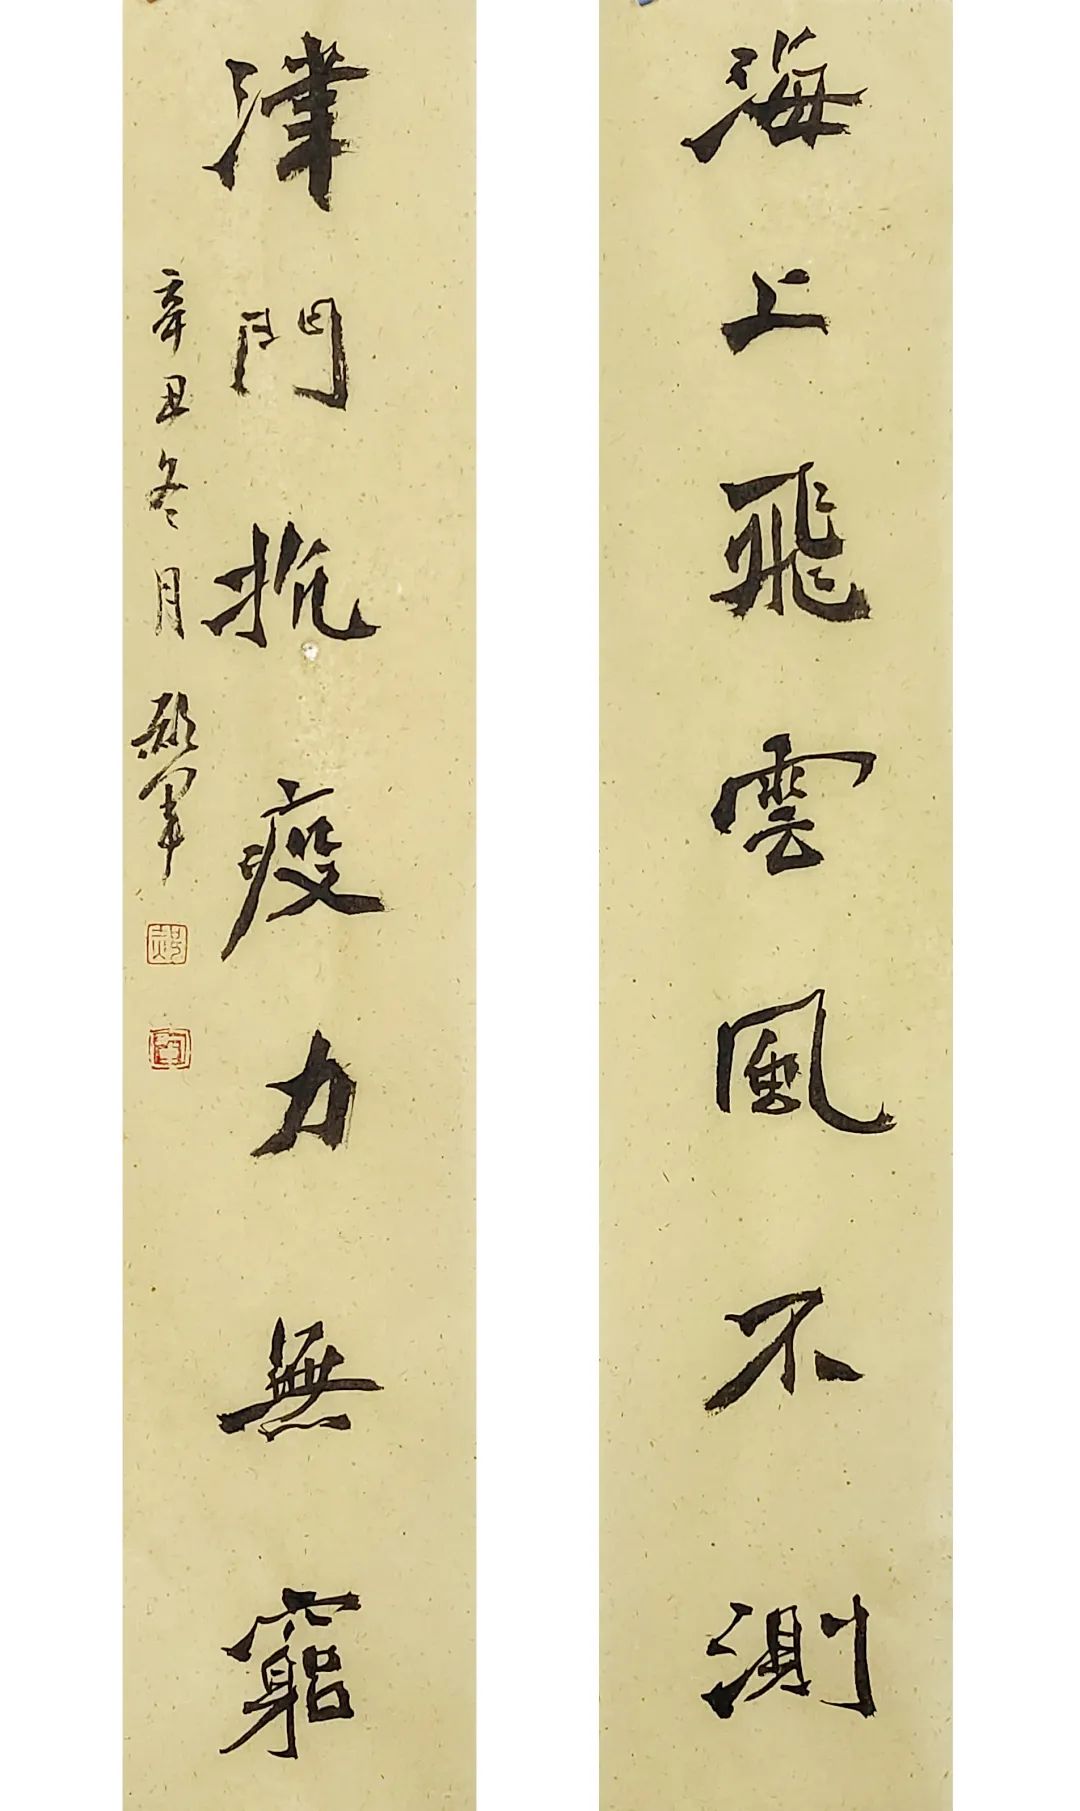 海上飛雲風不測
津門抗疫力無窮
辛丑冬月